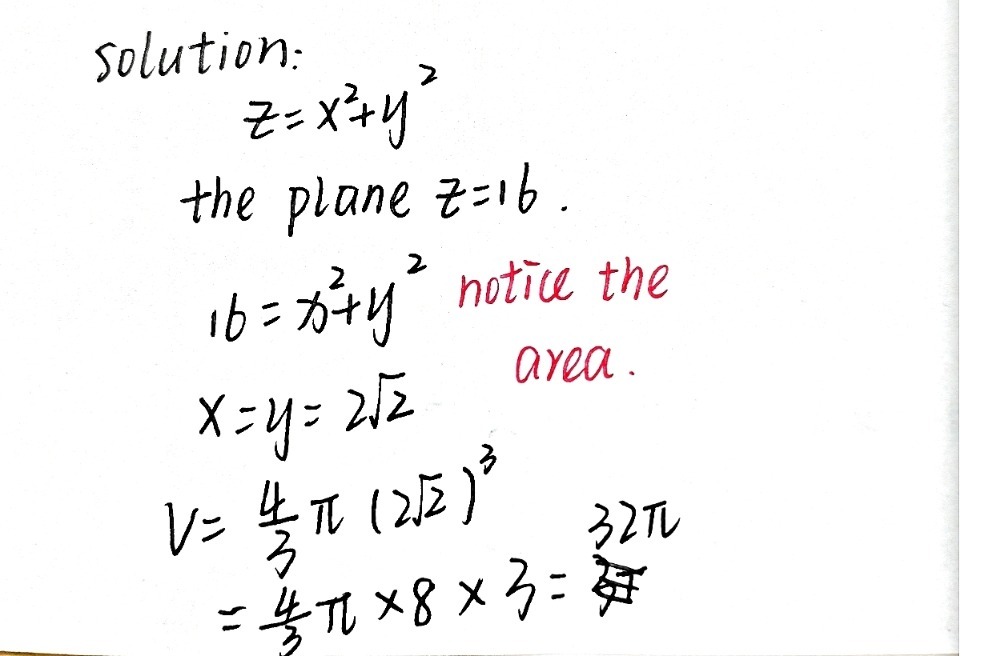 solution:
z=x²+y²
the plane z=16.
16=x²+y² notice the
area.
x=y=2√2
V=4/3 π (2√2)³
=4/3 π ×8 ×3= 32π